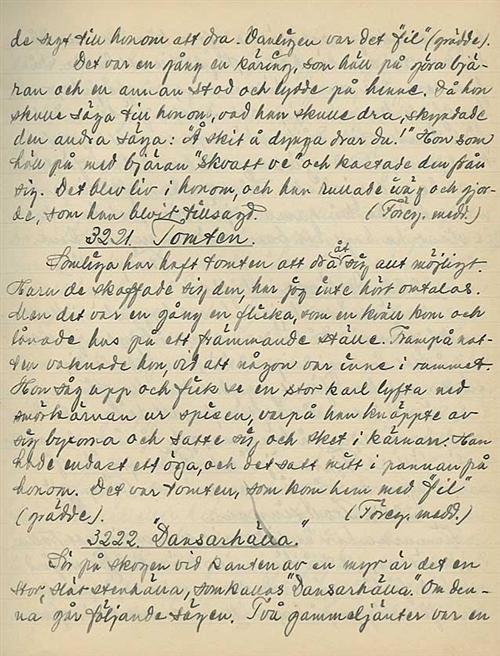 de sagt till honom att dra. Vanligen var det "fil" (grädde).
Det var en gång en käring, som höll på göra bjä-
ran och en annan stod och lydde på henne. Då hon
skulle säga till honom, vad han skulle dra, skyndade
den andra säga: "Å skit å dynga drar du!" Hon som
höll på med bjäran "skvatt ve" och kastade den från
sig. Det blev liv i honom, och han rullade iväg och gjor-
de, som han blvit tillsagd. (Föreg. medd.)
3221. Tomten.
Somliga har haft tomten att dra åt sig allt möjligt.
Huru de skaffade sig den, har jag inte hört omtalas.
Men det var en gång en flicka, som en kväll kom och
lånade hus på ett främmande ställe. Frampå nat-
ten vaknade hon, vid att någon var inne i rummet.
Hon såg upp och fick se en stor karl lyfta ned
smörkärnan ur spisen, varpå han knäppte av
sig byxorna och satte sig och sket i kärnan. Han
hade endast ett öga, och det satt mitt i pannan på
honom. Det var tomten, som kom hem med "fil"
(grädde). (Föreg. medd.)
3222. "Dansarhälla."
Sör på skogen vid kanten av en myr är det en
stor, slät stenhälla, som kallas "Dansarhälla." Om den-
na går följande sägen. Två gammeljänter var en